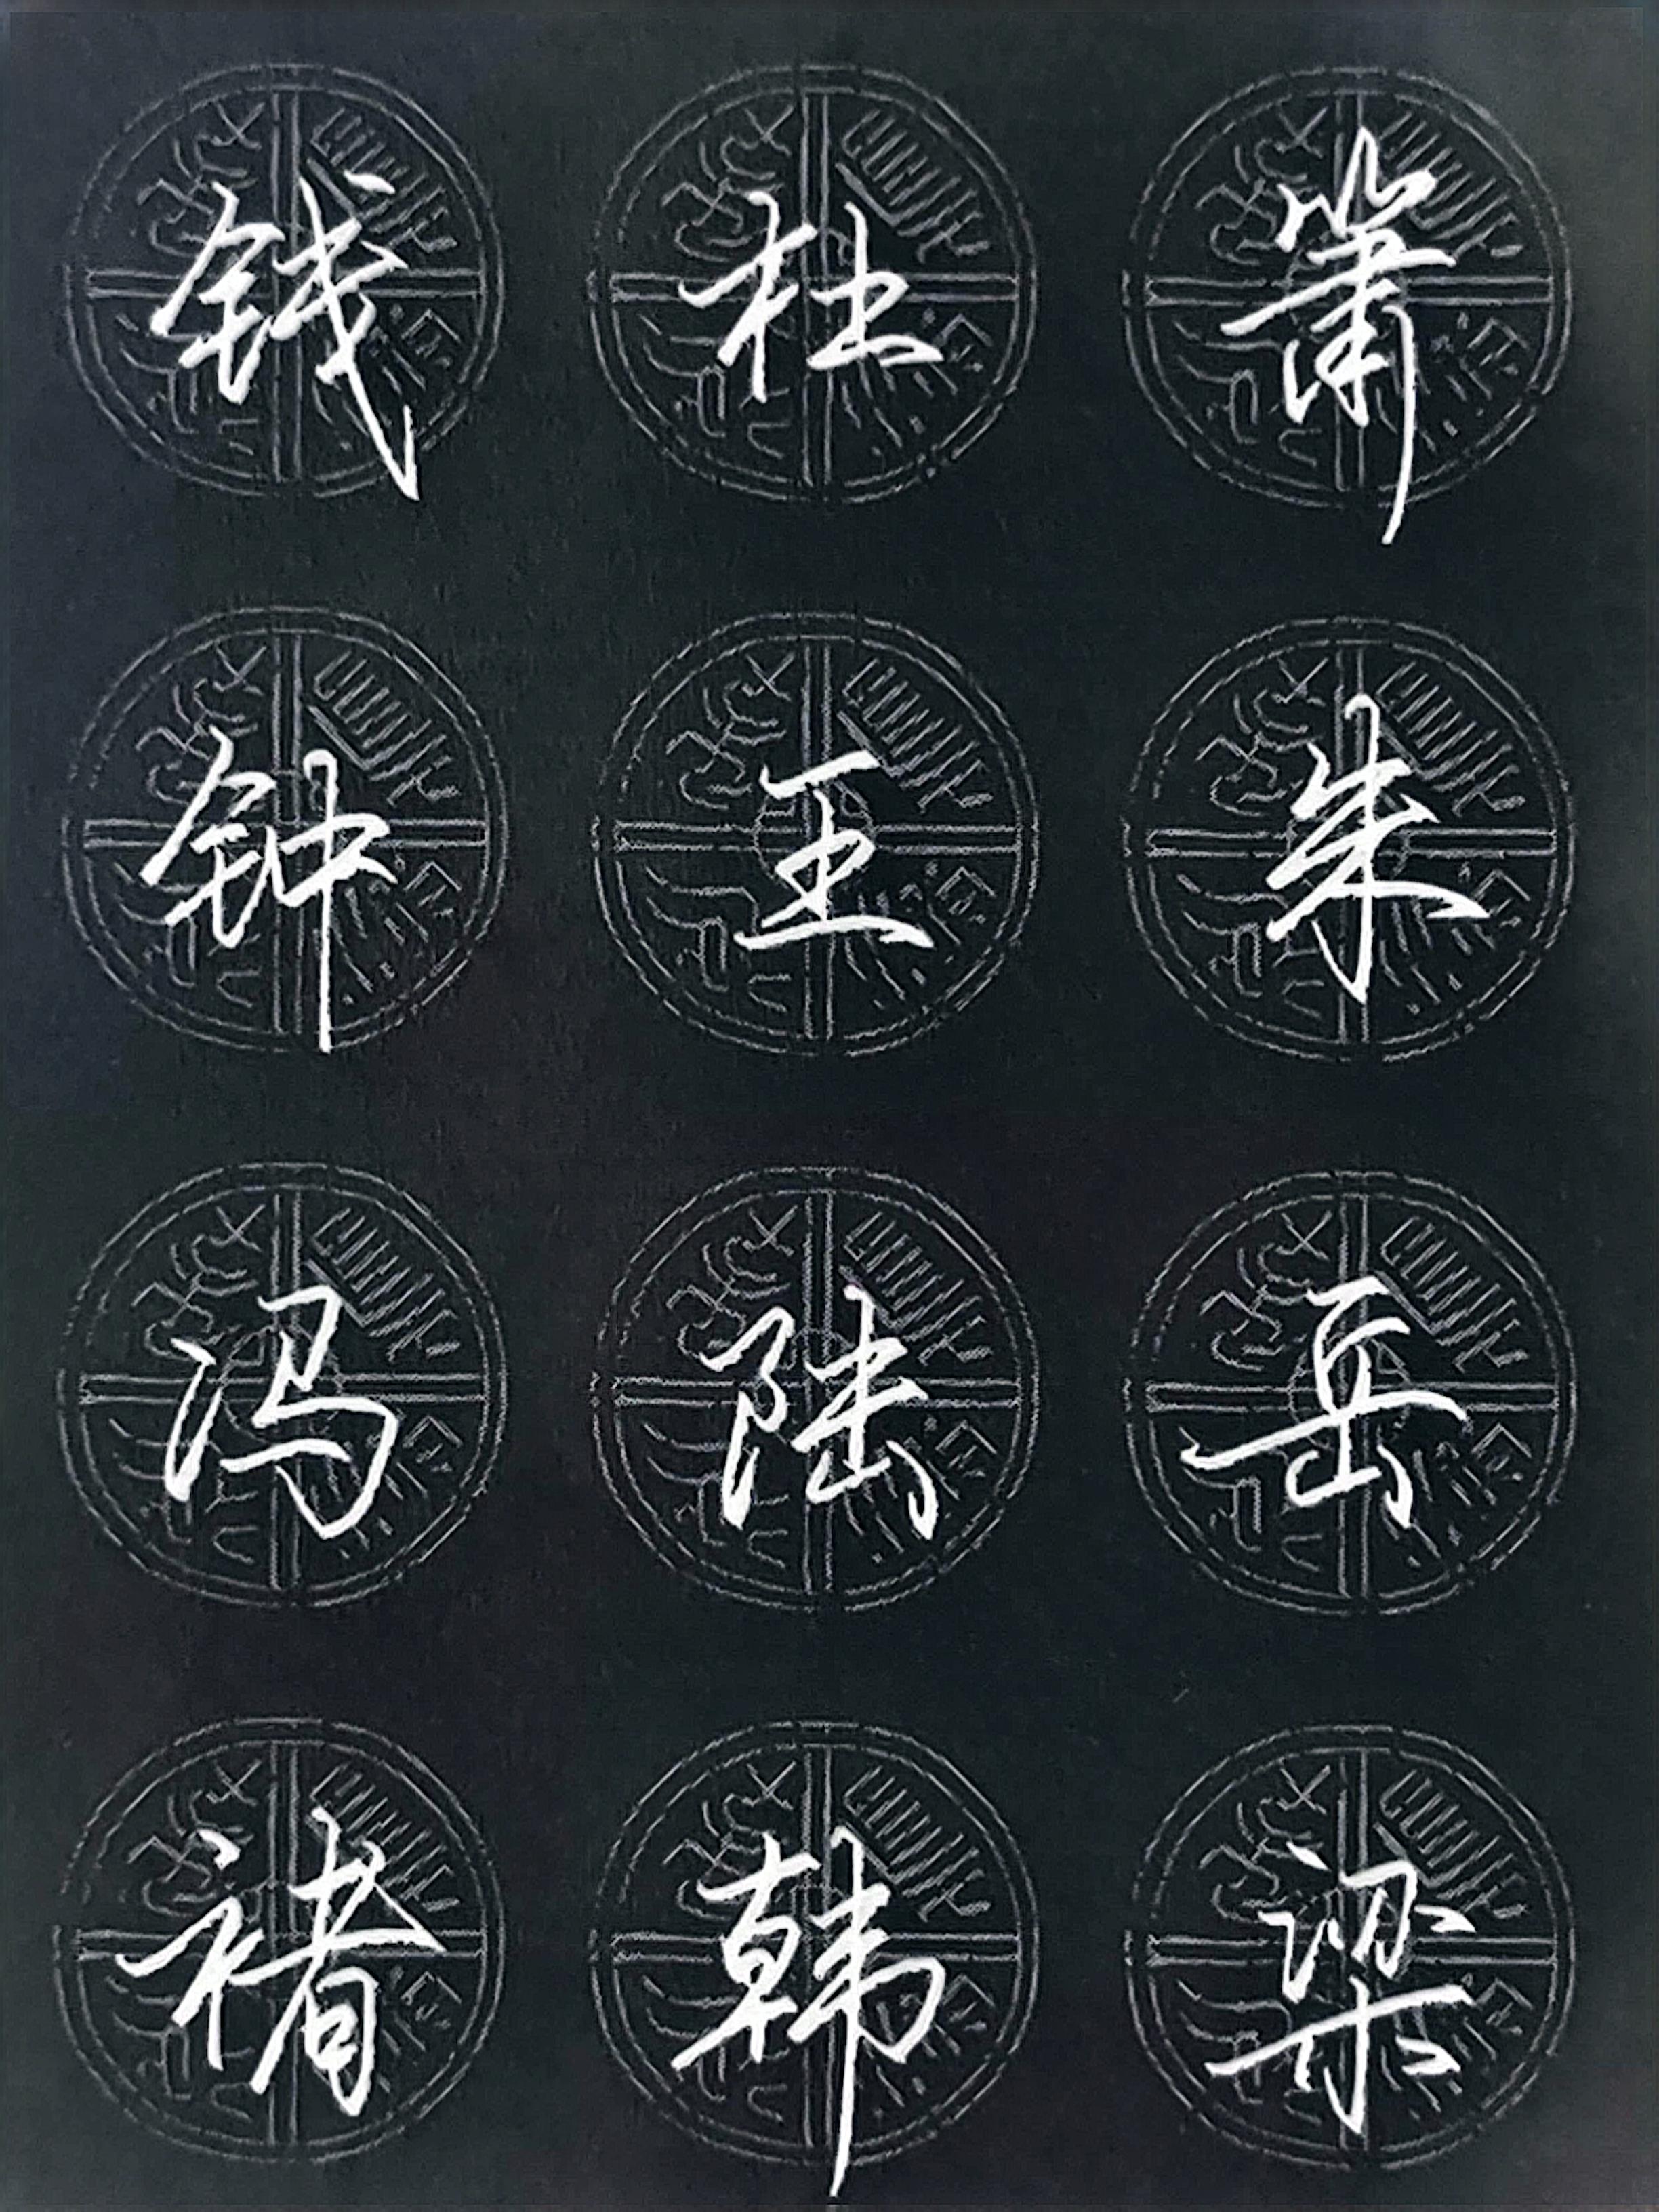 钱 杜 萧
钟 王 朱
冯 陆 岳
褚 韩 梁